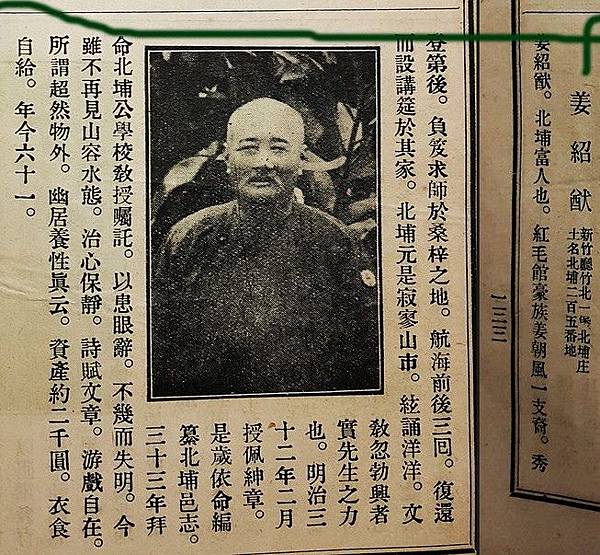 姜紹猷
新竹廳竹北一堡北埔庄
土名北埔二百五番地
姜紹猷。北埔富人也。紅毛館豪族姜朝風一支裔。秀
登第後。負笈求師於桑梓之地。航海前後三囘。復還
而設講筵於其家。北埔元是寂寥山市。絃誦洋洋。文
敎忽勃興者
實先生之力
也。明治三
十二年二月
授佩紳章。
是歲依命編
纂北埔邑志。
三十三年拜
命北埔公學校敎授囑託。以患眼辭。不幾而失明。今
雖不再見山容水態。治心保靜。詩賦文章。游戲自在。
所謂超然物外。幽居養性眞云。資產約二千圓。衣食
自給。年今六十一。